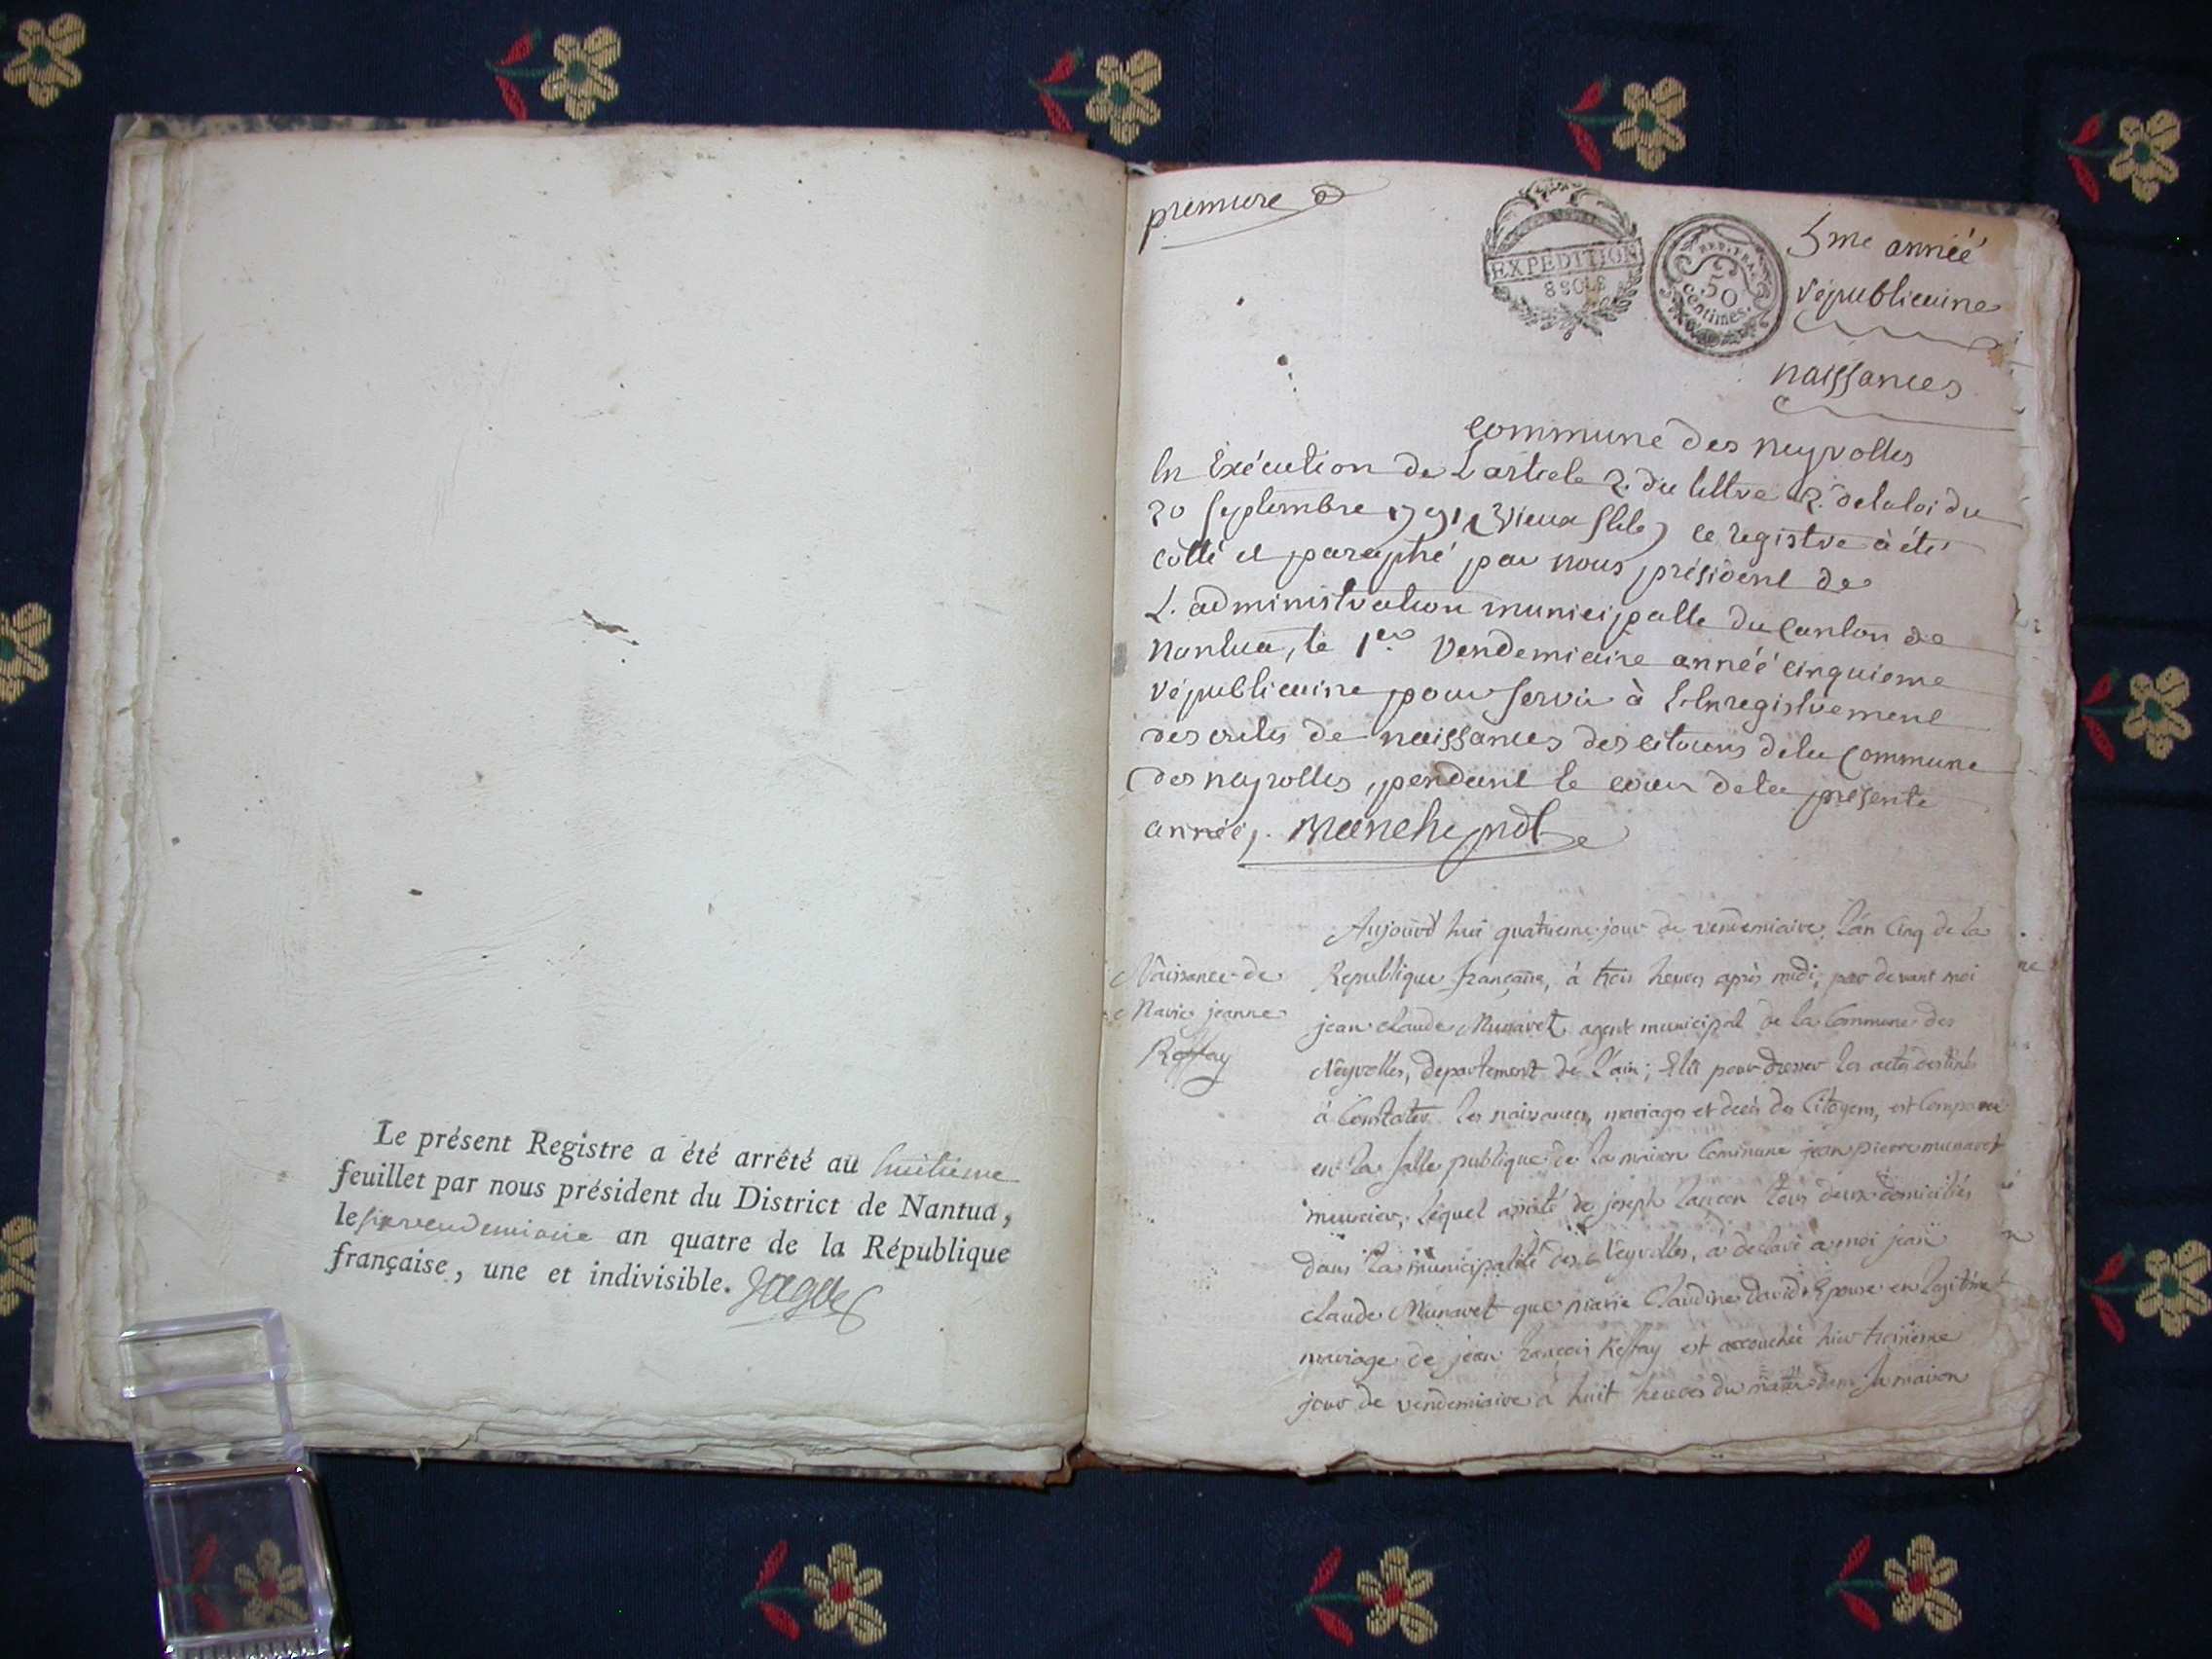 Le présent Registre a été arrêté au huitieme
feuillet par nous président du District de Nantua,
le six vendemiaire an quatre de la République
française, une et indivisible.
premiere
EXPEDITION
8 SOLS
REP. FRA.
50
centimes.
5me année
républicaine
naissances
commune des neyrolles
En Exécution de L'article 2. du tittre 2. de la loi du
20 septembre 1791 (vieux stile) ce registre à été
cotté et paraphé par nous président de
L'administration municipalle du Canton de
Nantua, le 1er Vendemiaire année cinquieme
républicaine pour servir à L'Enregistrement
des actes de naissances des citoiens de la Commune
des neyrolles, pendant le cour de la présente
année,.
Aujourd'hui quatrieme jour de vendemiaire l'an Cinq de la
Naissance de
Marie jeanne
Reffay
Republique française, à trois heures après midi, par devant moi
jean claude Munavet agent municipal de la Commune des
Neyrolles, departement de l'ain; Elu pour dresser les actes destinés
à Constater les naissances, mariages et decès des Citoyens, est Comparu
en la salle publique de la maison Commune jean pierre munavet
lequel assisté de joseph lançon tous deux domiciliés
dans la municipalité des Neyrolles, à declaré à moi jean
claude Munavet que marie Claudine david Epouse en legitime
mariage de jean françois Reffay est accouchée hier troisieme
jour de vendemiaire à huit heures du matin dans sa maison